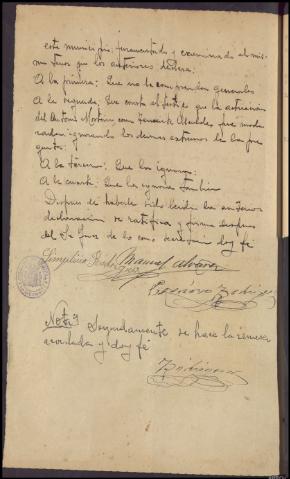 este municipio, juramentado y examinado al mis-
mo tenor que los anteriores dijo:
A la primera: Que no le comprenden generales
A la segunda: Que consta al testigo que la actuación
del Antonio como fue mode
rada ignorando los demas extremos de la pre
gunta:
A la tercera: Que la ignora:
A la cuarta: Que la ignora tambien
Despues de haberle sido leida la anterior
declaración se ratifica y firma despues
del Sr Juez de lo como secretario doy fe
Manuel Alvarez
Nota Seguidamente se hace la remesa
acordada y doy fe